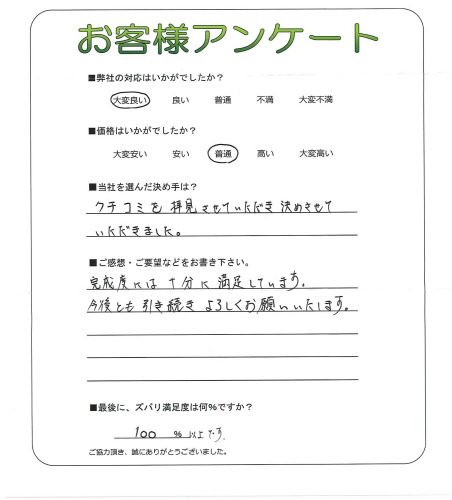 お客様アンケート
■弊社の対応はいかがでしたか？
大変良い 良い 普通 不満 大変不満
■価格はいかがでしたか？
大変安い 安い 普通 高い 大変高い
■当社を選んだ決め手は？
クチコミを拝見させていただき決めさせて
いただきました。
■ご感想・ご要望などをお書き下さい。
完成度には十分に満足しています。
今後とも引き続きよろしくお願いいたします。
■最後に、ズバリ満足度は何％ですか？
100 ％以上です。
ご協力頂き、誠にありがとうございました。